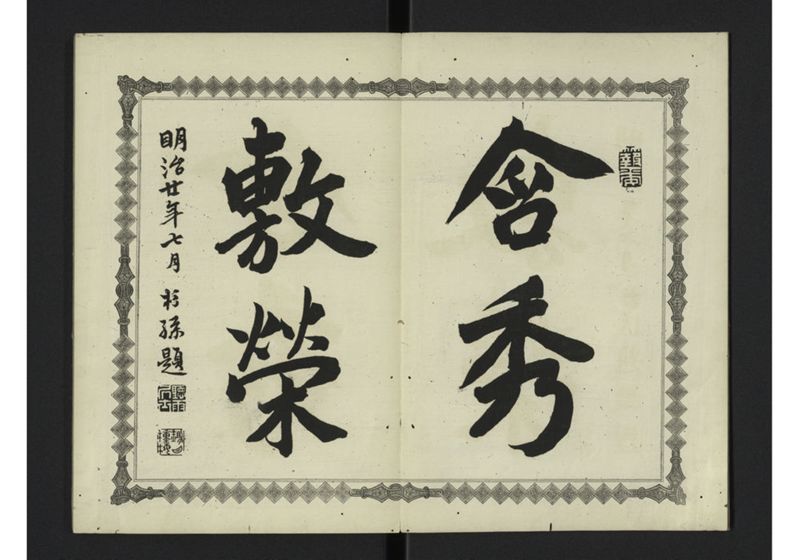 含秀
敷榮
明治廿年七月 杉孫題